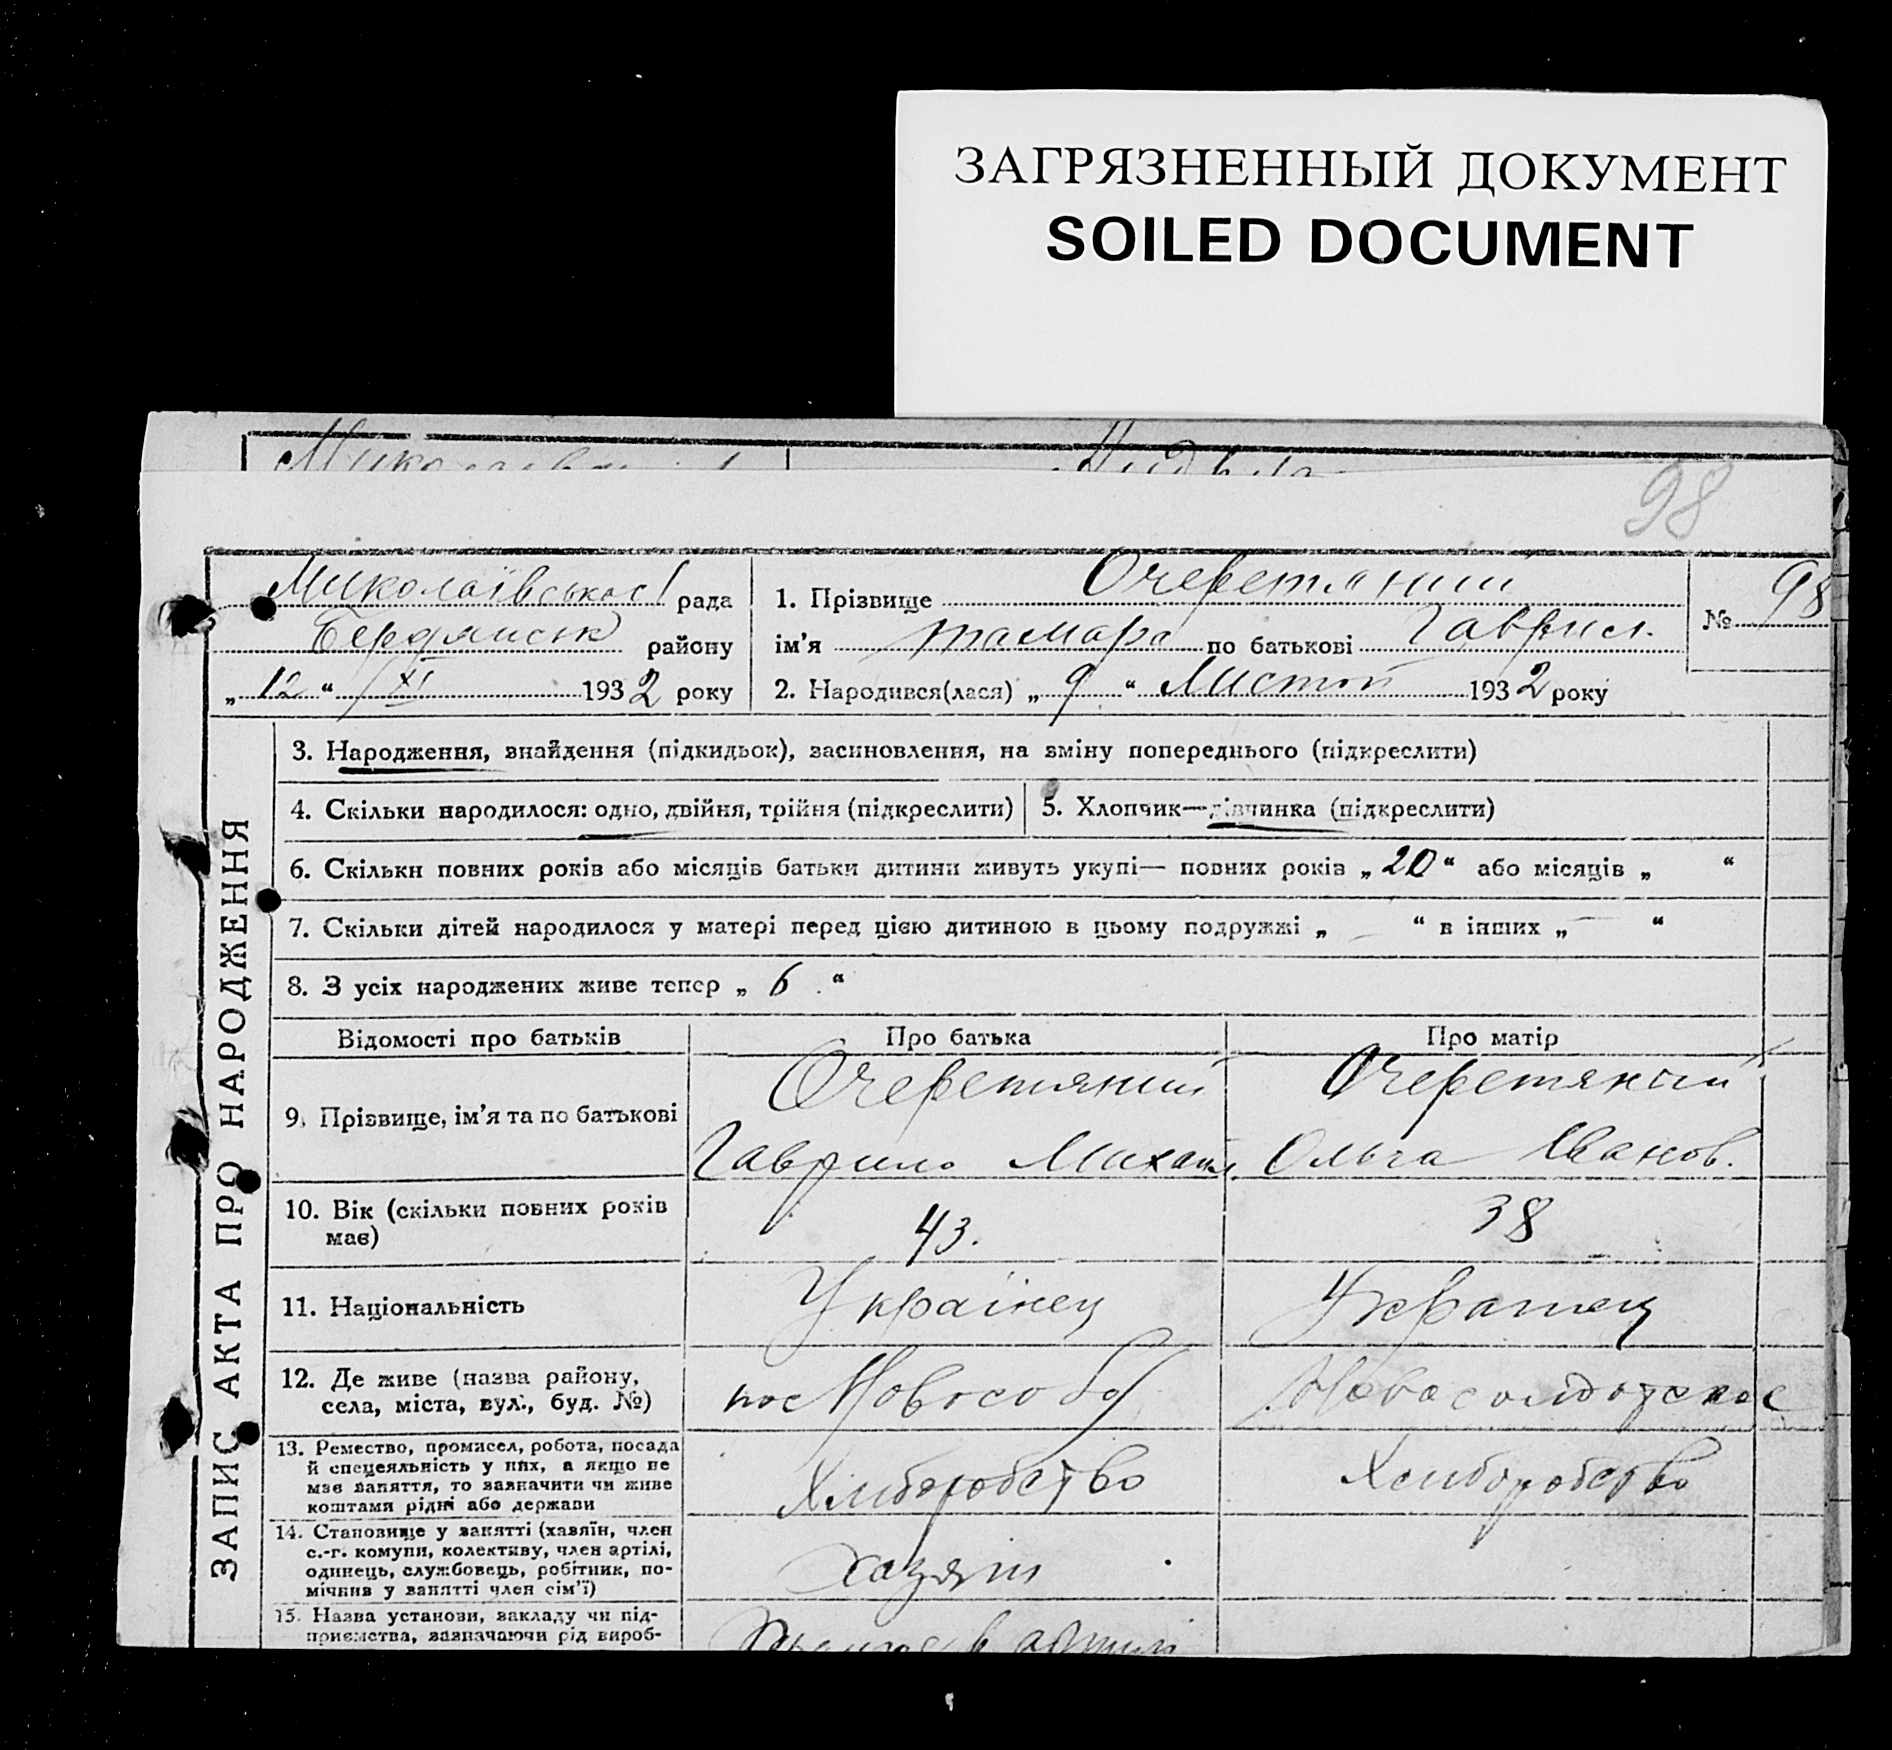 ЗАГРЯЗНЕННЫЙ ДОКУМЕНТ
SOILED DOCUMENT
98
Миколаївської рада
Бердянськ району
„ 12 “ XI 1932 року
1. Прізвище Очеретяний
ім’я Тамара по батькові Гаврил.
2. Народився(лася) „ 9 “ Листоп 1932 року
№ 98
ЗАПИС АКТА ПРО НАРОДЖЕННЯ
3. Народження, знайдення (підкидьок), засиновлення, на зміну попереднього (підкреслити)
4. Скільки народилося: одно, двійня, трійня (підкреслити)
5. Хлопчик—дівчинка (підкреслити)
6. Скільки повних років або місяців батьки дитини живуть укупі— повних років „ 20 “ або місяців „ “
7. Скільки дітей народилося у матері перед цією дитиною в цьому подружжі „ — “ в інших „ — “
8. З усіх народжених живе тепер „ 6 “
Відомості про батьків Про батька Про матір
9. Прізвище, ім’я та по батькові
Очеретяний
Гаврило Михайл
Очеретяний
Ольга Иванов.
10. Вік (скільки повних років
має)
43.
38
11. Національність
Українец
Украинец
12. Де живе (назва району,
села, міста, вул., буд. №)
пос
Новосолдатское
13. Ремество, промисел, робота, посада
й спецеяльність у них, а якщо не
має заняття, то зазначити чи живе
коштами рідні або держави
Хлиборобство
Хлиборобство
14. Становище у занятті (хазяїн, член
с.-г. комуни, колективу, член артілі,
одинець, службовець, робітник, по-
мічник у занятті член сім’ї)
хазяін
15. Назва установи, закладу чи під-
приємства, зазначаючи рід вироб-